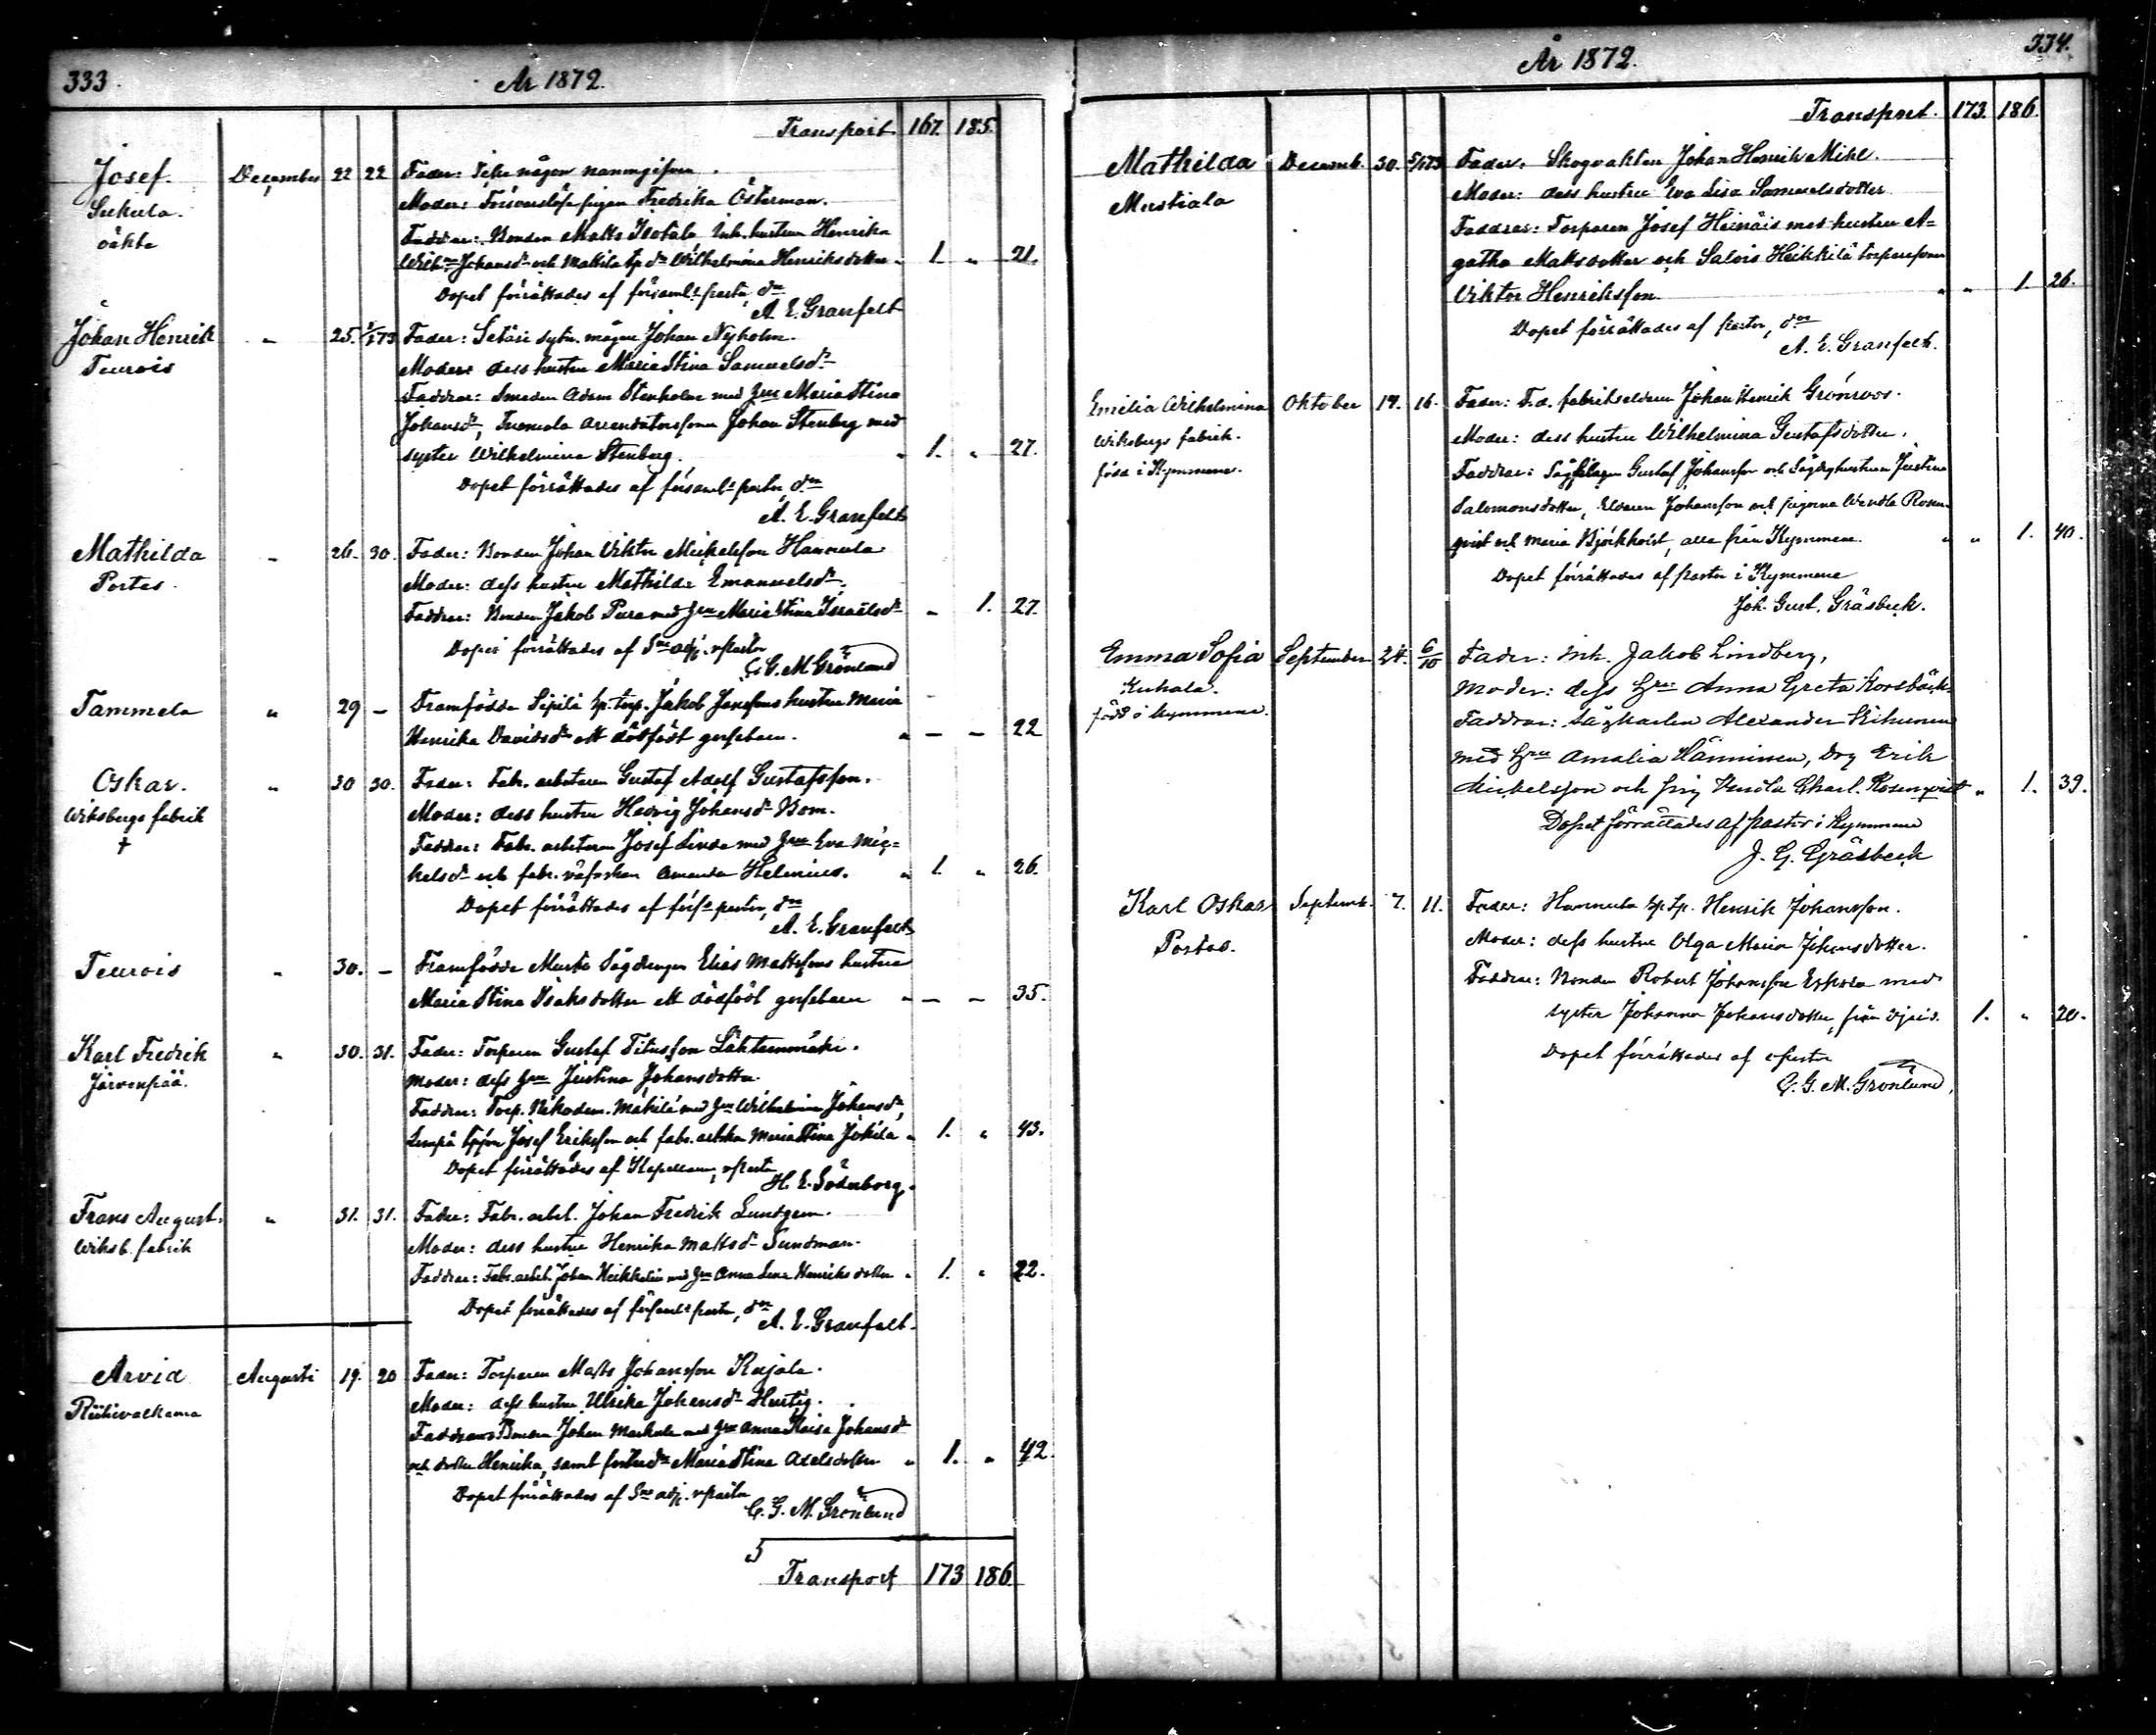 333.
År 1872.
Transport. 167. 185.
Josef. December 22 22 Fader: Icke någon namngifven.
Sukula. Moder: Försvarslösa pigan Fredrika Österman.
oäkta Faddrar: Bonden Matts Isotalo, Inh. hustrun Henrika
Johansd:r och Mattila tp. d:r Wilhelmina Henriksdotter " 1. " 21.
Dopet förrättades af församl:s pastor, d:n
A. E. Granfelt
Johan Henrik " 25. 1/1 73 Fader: Setäri sytn. mågen Johan Nyholm.
Teurois Moder: dess hustru Maria Stina Samuelsd:r
Faddrar: Smeden Adam Stenholm med h:ru Maria Stina
Johansd:r, arrendatorssonen Johan Stenberg med
syster Wilhelmina Stenberg. " 1. " 27.
Dopet förrättades af församl:s pastor, d:n
A. E. Granfelt
Mathilda " 26. 30. Fader: Bonden Johan Viktor Mickelsson Hannula
Portas. Moder: dess hustru Mathilda Emanuelsd:r.
Faddrar: Bonden Jakob Pura med h:ru Maria Stina Israelsd:r " 1. 27.
Dopet förrättades af S:ne adj. v. pastor
C. G. M. Grönlund
Tammela " 29 — Framfödde Sipilä tp. torp. Jakob hustru Maria
Henrika Davidsd:r ett dödfödt gossebarn. " — — 22
Oskar. " 30 30. Fader: Fabr. arbetaren Gustaf Adolf Gustafsson.
Wiksbergs fabrik Moder: dess hustru Hedvig Johansd:r Bom.
† Faddrar: Fabr. arbetaren Josef Linde med h:ru Eva Mic-
kelsd:r och fabr. väfverskan Amanda Helenius. " 1. " 26.
Dopet förrättades af förs:s pastor, d:n
A. E. Granfelt
Teurois " 30. — Framfödde Musta Sågdrengen Elias Mattssons hustru
Maria Stina Isaksdotter ett dödfödt gossebarn " — — 35.
Karl Fredrik " 30. 31. Fader: Torparen Gustaf Titusson Lähteenmäki.
Järvenpää. Moder: dess h:ru Justina Johansdotter.
Faddrar: Torp. Nikodem. Mäkilä med h:ru Wilhelmina Johansd:r,
Josef Eriksson och fabr. arbskan Maria Stina Jokila " 1. " 43.
Dopet förrättades af Kapellanen, v. pastor
H. E. Söderborg.
Frans August. " 31. 31. Fader: Fabr. arbet. Johan Fredrik Lundgren.
Wiksb. fabrik Moder: dess hustru Henrika Mattsd:r Sundman.
Faddrar: Fabr. arbet. Johan Heikkelin med h:ru Anna Lena Henriksdotter " 1. " 22.
Dopet förrättades af församl:s pastor, d:n
A. E. Granfelt.
Arvid Augusti 19. 20 Fader: Torparen Matts Johansson Kujala.
Riihivalkama Moder: dess hustru Ulrika Johansd:r Hurtig.
Faddrar: Bonden Johan Markula med h:ru Anna Kaisa Johansd:r
och dotter Henrika, samt Maria Stina Axelsdotter " 1. " 42.
Dopet förrättades af S:ne adj. v. pastor
C. G. M. Grönlund
Transport 173 186.
334.
År 1872.
Transport. 173. 186.
Mathilda Decemb. 30. 5/1 73 Fader: Skogvakten Johan Henrik Mikl.
Mustiala Moder: dess hustru Eva Lisa Samuelsdotter
Faddrar: Torparen Josef Heinäis med hustru A-
gatha Mattsdotter och Salois Heikkilä torparesonen
Viktor Henriksson. " " 1. 26.
Dopet förrättades af Pastor, d:n
A. E. Granfelt.
Emilia Wilhelmina Oktober 14. 16. Fader: F.d. fabrikseldaren Johan Henrik Grönroos.
Wiksbergs fabrik. Moder: dess hustru Wilhelmina Gustafsdotter.
föda i Kymmene. Faddrar: Gustaf Johansson och Justina
Salomonsdotter, Eldaren Johansson och pigorna Wendla Rosen-
qvist och Maria Björkholt, alla från Kymmene. " " 1. 40.
Dopet förrättades af Pastor i Kymmene
Joh. Gust. Gräsbeck.
Emma Sofia September 24. 6/10 Fader: Inh. Jakob Lindberg,
Kuhala. Moder: dess h:ru Anna Greta Korsbäck
född i Kymmene. Faddrar: Sågkarlen Alexander
med h:ru Amalia Hänninen, Drg Erik
Mickelsson och pig Vendla Charl. Rosenqvist " 1. 39.
Dopet förrättades af Pastor i Kymmene
J. G. Gräsbeck
Karl Oskar Septemb. 7. 11. Fader: Hannula tp. tp. Henrik Johansson.
Portas. Moder: dess hustru Olga Maria Johansdotter.
Faddrar: Bonden Robert Johansson Eskola med
syster Johanna Johansdotter, från 1. " 20.
Dopet förrättades af v. pastor
C. G. M. Grönlund.